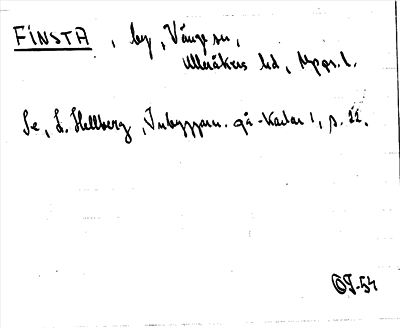 FINSTA, by, Vänge sn,
Ulleråkers hd, Upps. l.
Se, L. Hellberg, Inbyggarn. på -karlar 1, s. 22.
ÖJ-54